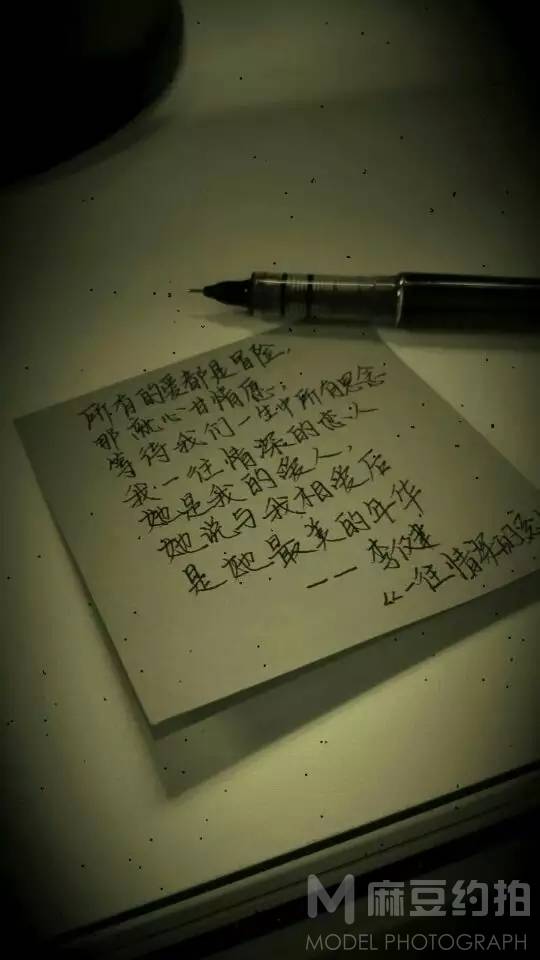 所有的爱都是冒险，
那就心甘情愿；
等待我们一生中所有思念
我一往情深的恋人
她是我的爱人，
她说与我相爱后
是她最美的年华
—— 李健
《一往情深的恋
麻豆约拍
MODEL PHOTOGRAPH